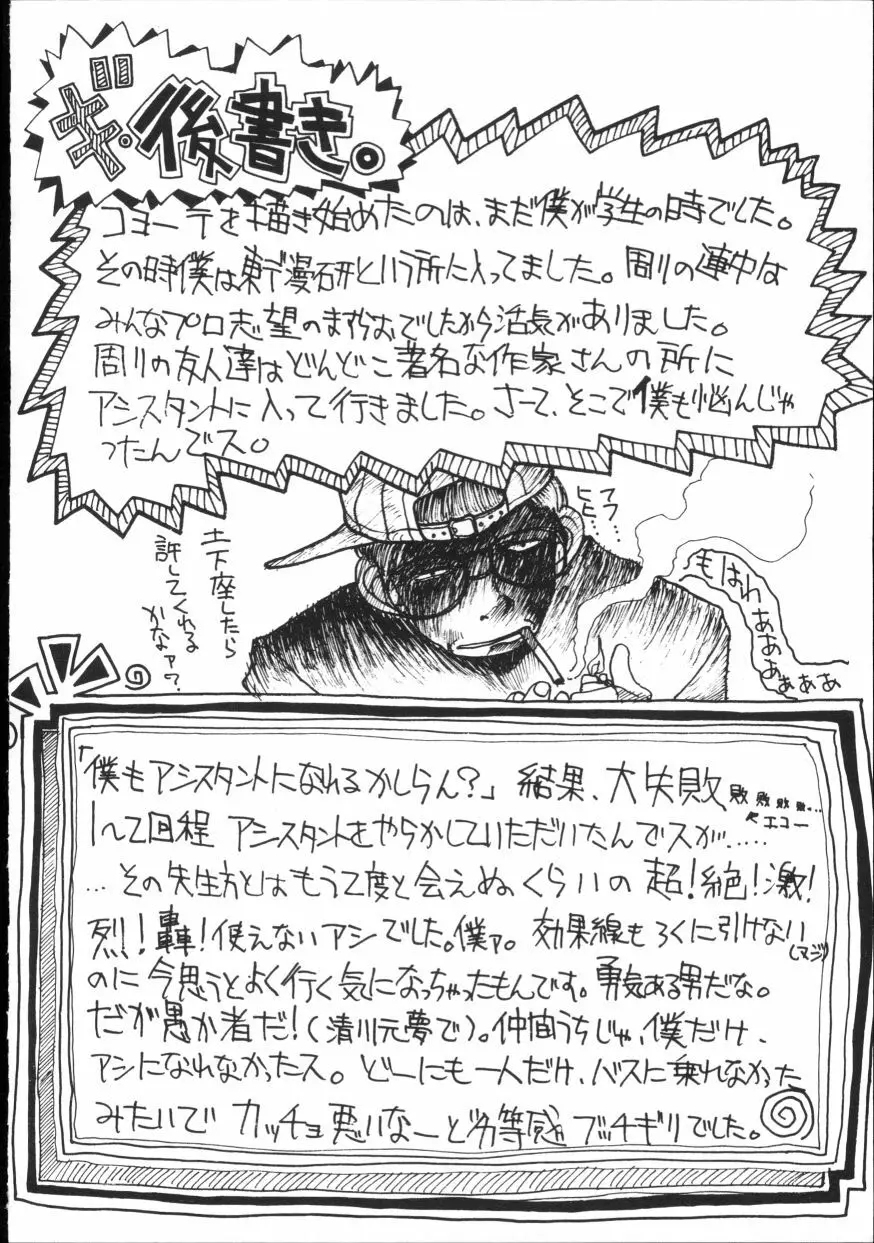 ギ・後書き。
コヨーテを描き始めたのは、まだ僕が学生の時でした。
その時僕は東デ漫研という所に入ってました。周りの連中は
みんなプロ志望のますらおでしたから活気がありました。
周りの友人達はどんどこ著名な作家さんの所に
アシスタントに入って行きました。さーて、そこで僕も悩んじゃ
ったんでス。
フフ…
ヒヒ…
もはわぁあああぁぁぁ
土下座したら
許してくれる
かなァ?
「僕もアシスタントになれるかしらん?」結果、大失敗敗敗敗敗…
エコー
1〜2回程 アシスタントをやらかしていただいたんでスが……
…その先生方とはもう2度と会えぬくらいの 超!絶!激!
烈!轟!使えないアシでした。僕ァ。効果線もろくに引けない
(マジ)
のに今思うとよく行く気になっちゃったもんです。勇気ある男だな。
だが愚か者だ!(清川元夢で)。仲間うちじゃ、僕だけ、
アシになれなかったス。どーにも一人だけ、バスに乗れなかった
みたいで カッチョ悪いなーと劣等感ブッチギリでした。